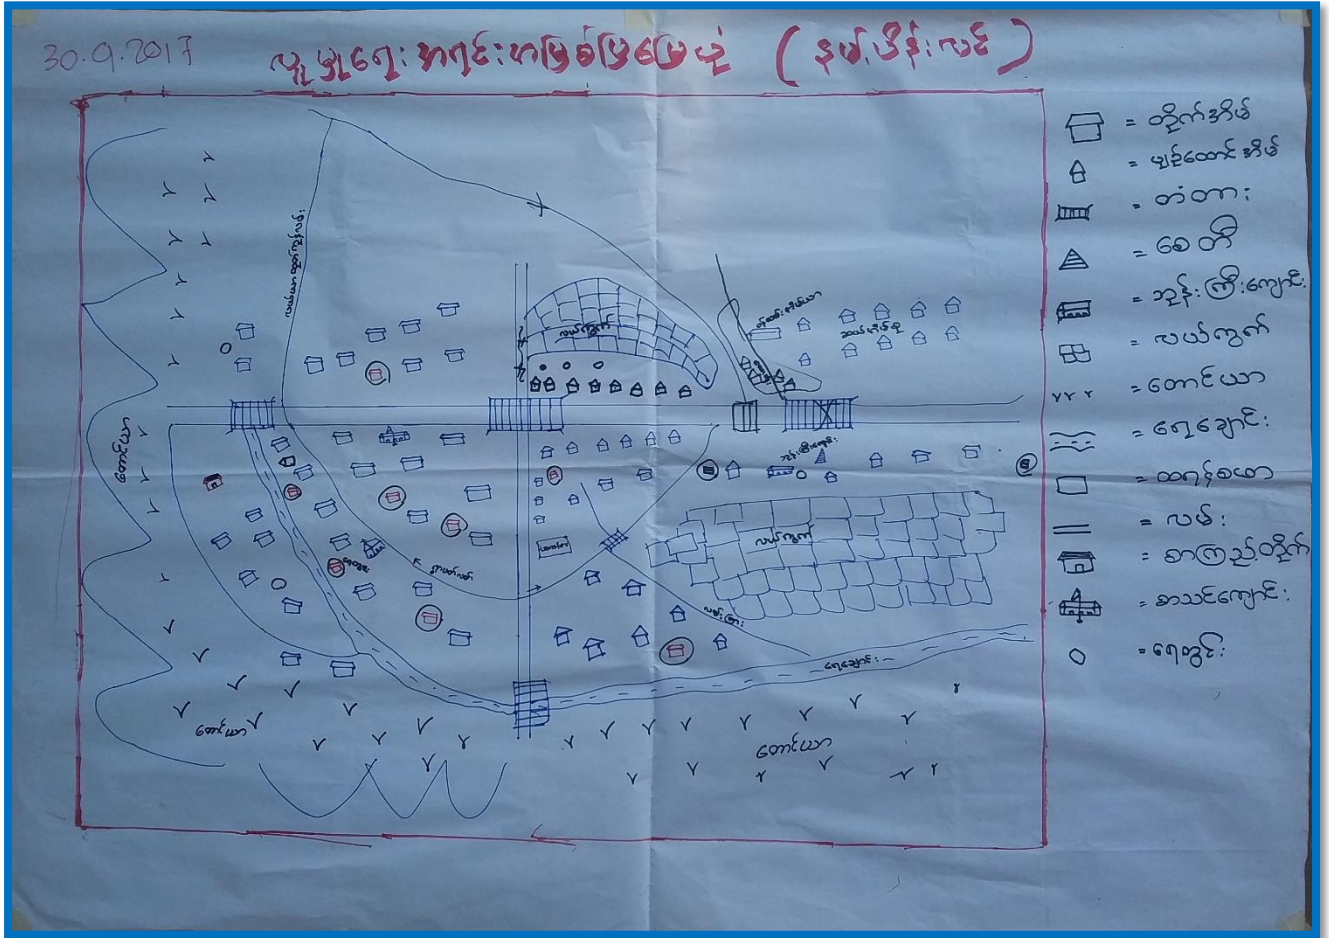 30.9.2017
လူမှုရေး အရင်းအမြစ်ပြမြေပုံ ( နမ့်ပိန်းလင် )
= တိုက်အိမ်
= ပျဉ်ထောင်အိမ်
= တံတား
= စေတီ
= ဘုန်းကြီးကျောင်း
= လယ်ကွက်
= တောင်ယာ
= ရေချောင်း
= ထရန်စဖော
= လမ်း
= စာကြည့်တိုက်
= စာသင်ကျောင်း
= ရေတွင်း
လယ်ကွက်
ဆယ်အိမ်စု
ဘုန်းကြီးကျောင်း
လယ်ကွက်
ရေချောင်း
တောင်ယာ
တောင်ယာ